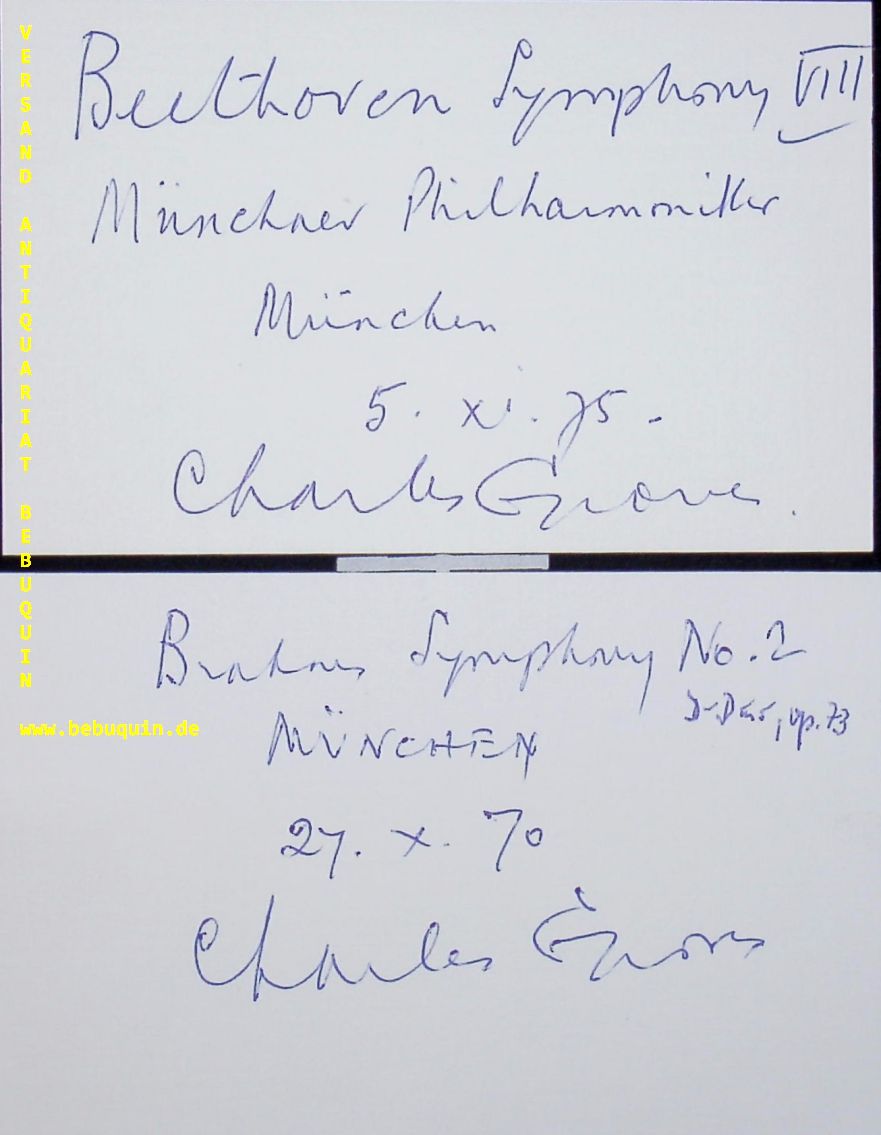 Beethoven Symphony VIII
Münchner Philharmoniker
München
5. xi. 75.
Charles Groves.
Brahms Symphony No. 2
D-Dur, op. 73
MÜNCHEN
27. x. 70
Charles Groves
VERSAND ANTIQUARIAT BEBUQUIN
www.bebuquin.de